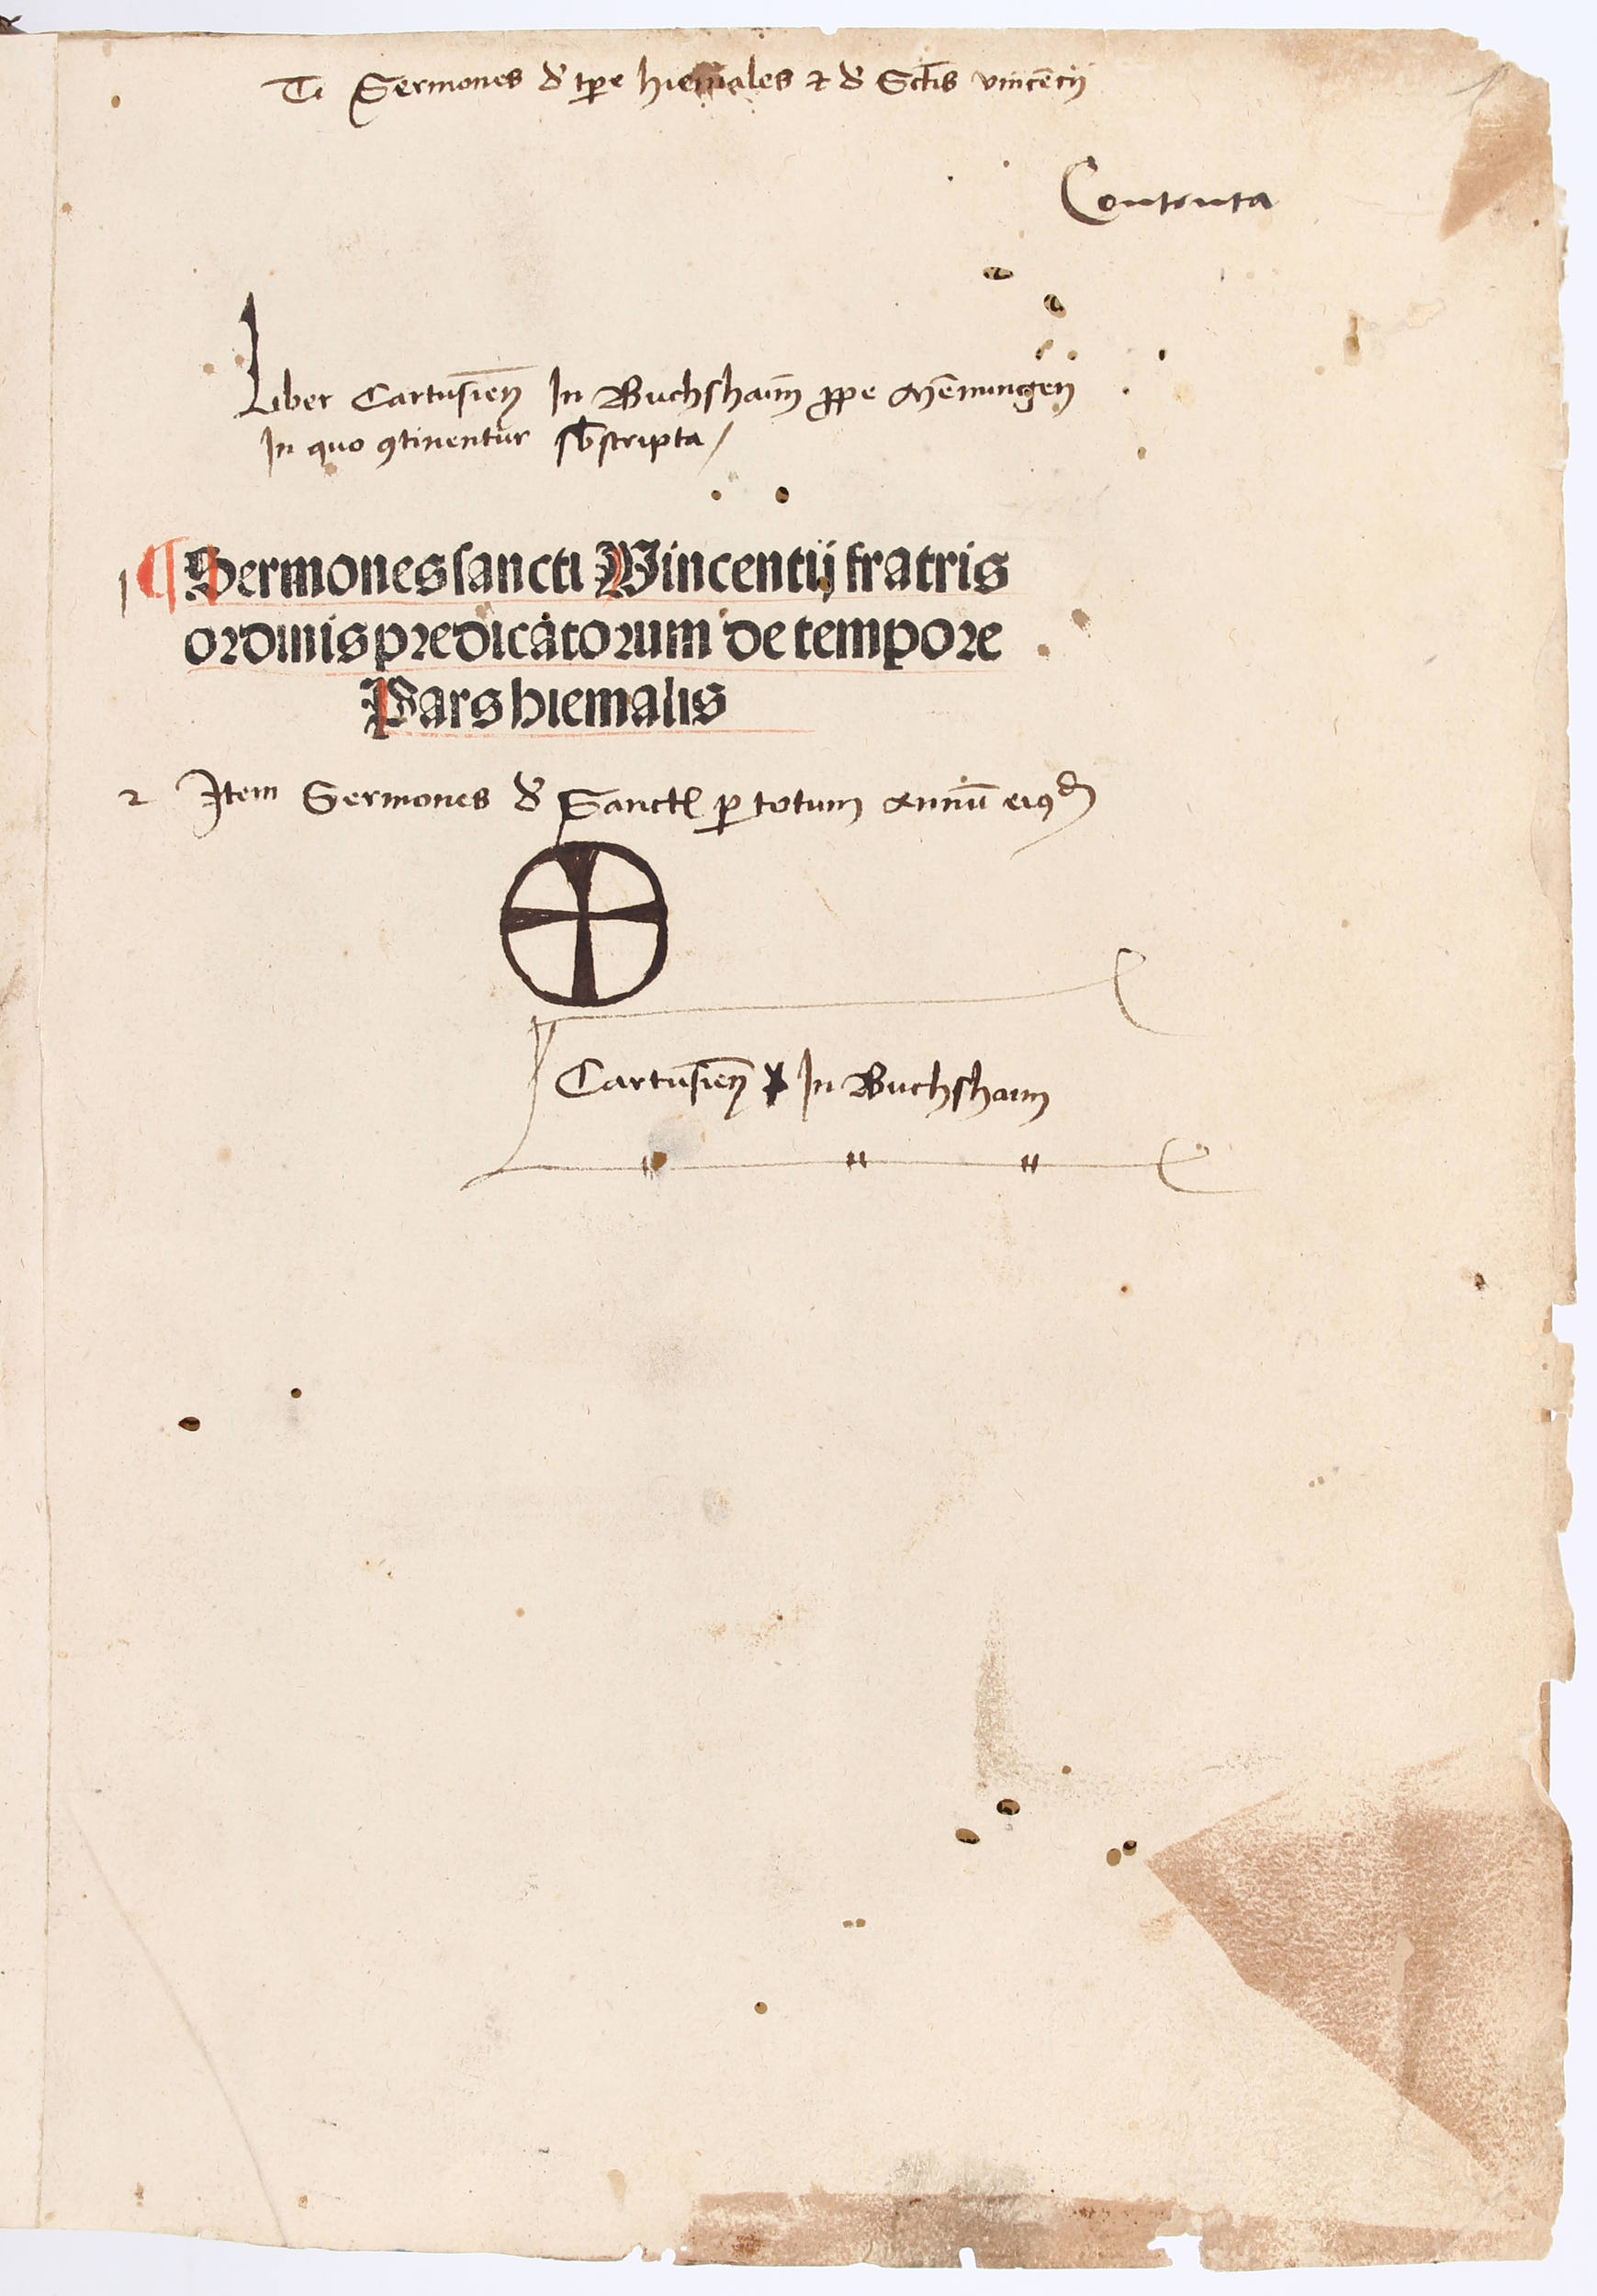 Ti Sermones d' tp̄e hiemales ⁊ d' Sctīs vincēcij
Contenta
Liber Cartusieñ In Buchshaim̄ ꝓpe Mēmingen
In quo ꝯtinentur sb̄scripta /
1 ¶ Sermones sancti Vincentij fratris
ordinis predicatorum de tempore
Pars hiemalis
2 Item Sermones d' Sanctꝭ ꝑ totum Annū eiꝰd
Cartusieñ In Buchshaim